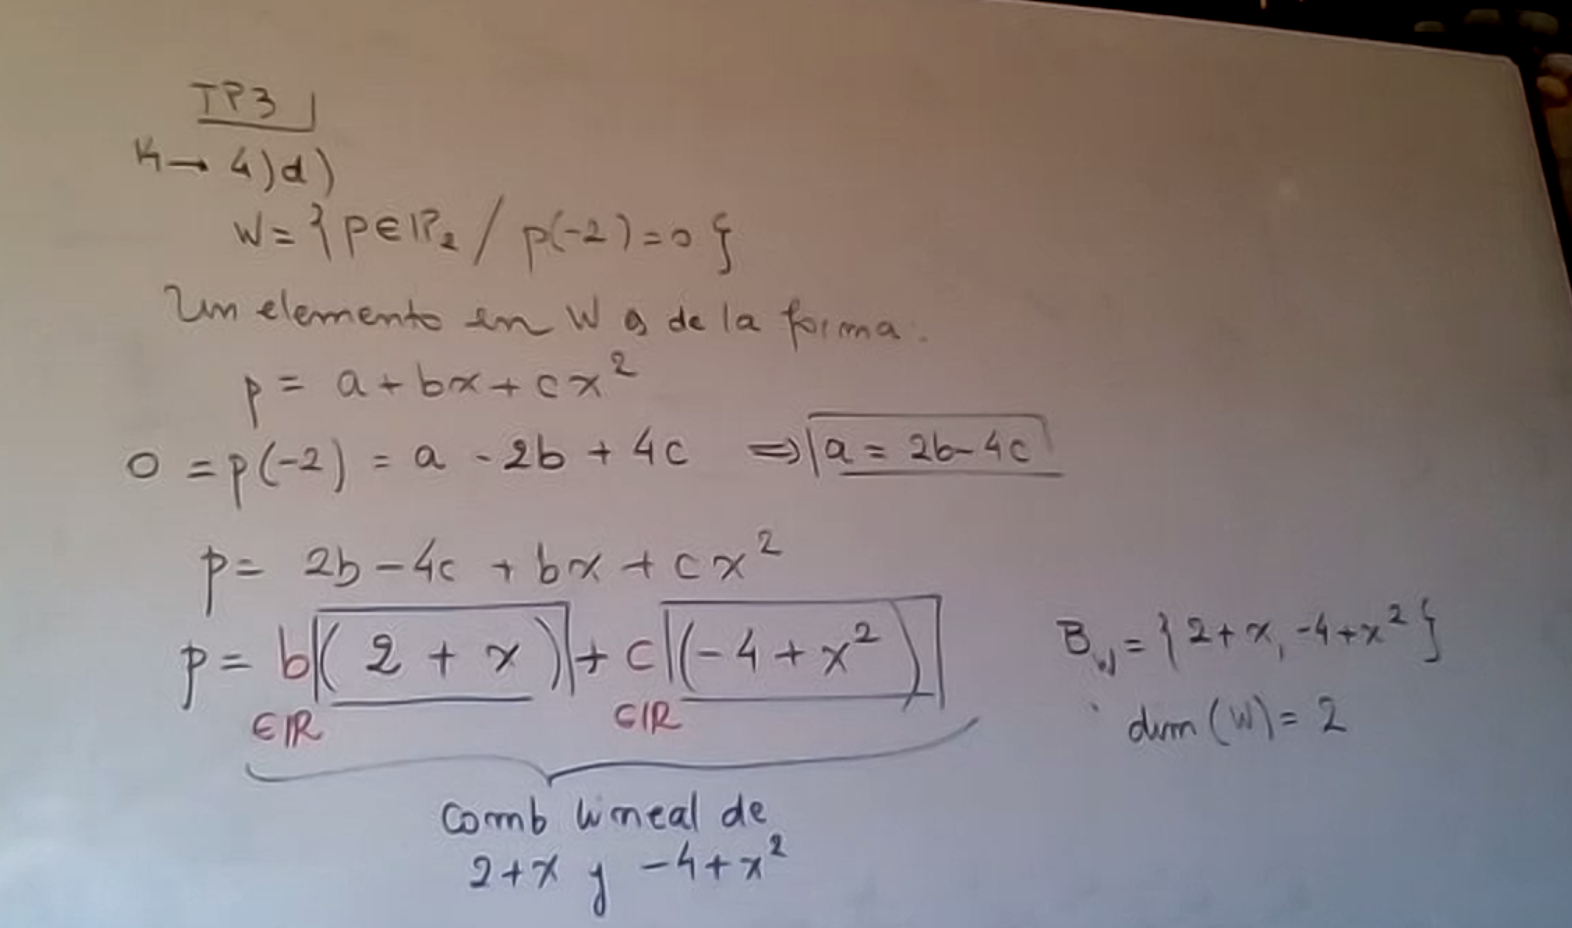 TP3
4)d)
W = { p ∈ P₂ / p(-2) = 0 }
Un elemento en W es de la forma:
p = a + bx + cx²
0 = p(-2) = a - 2b + 4c ⇒ a = 2b - 4c
p = 2b - 4c + bx + cx²
p = b (2 + x) + c (-4 + x²)
∈ IR ∈ IR
Comb lineal de
2+x y -4+x²
B_W = { 2+x, -4+x² }
dim (W) = 2